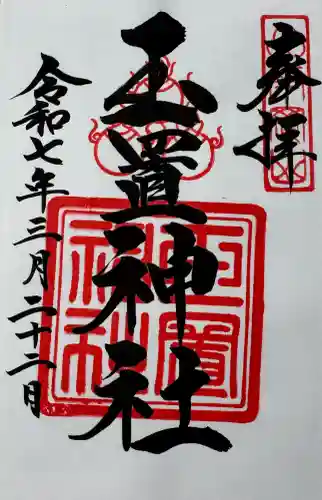 奉拝
玉置神社
令和七年三月二十二日
玉置
神社